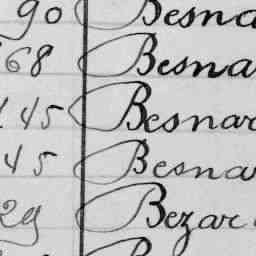 90 Besna
168 Besna
145 Besnar
45 Besna
29 Bezar